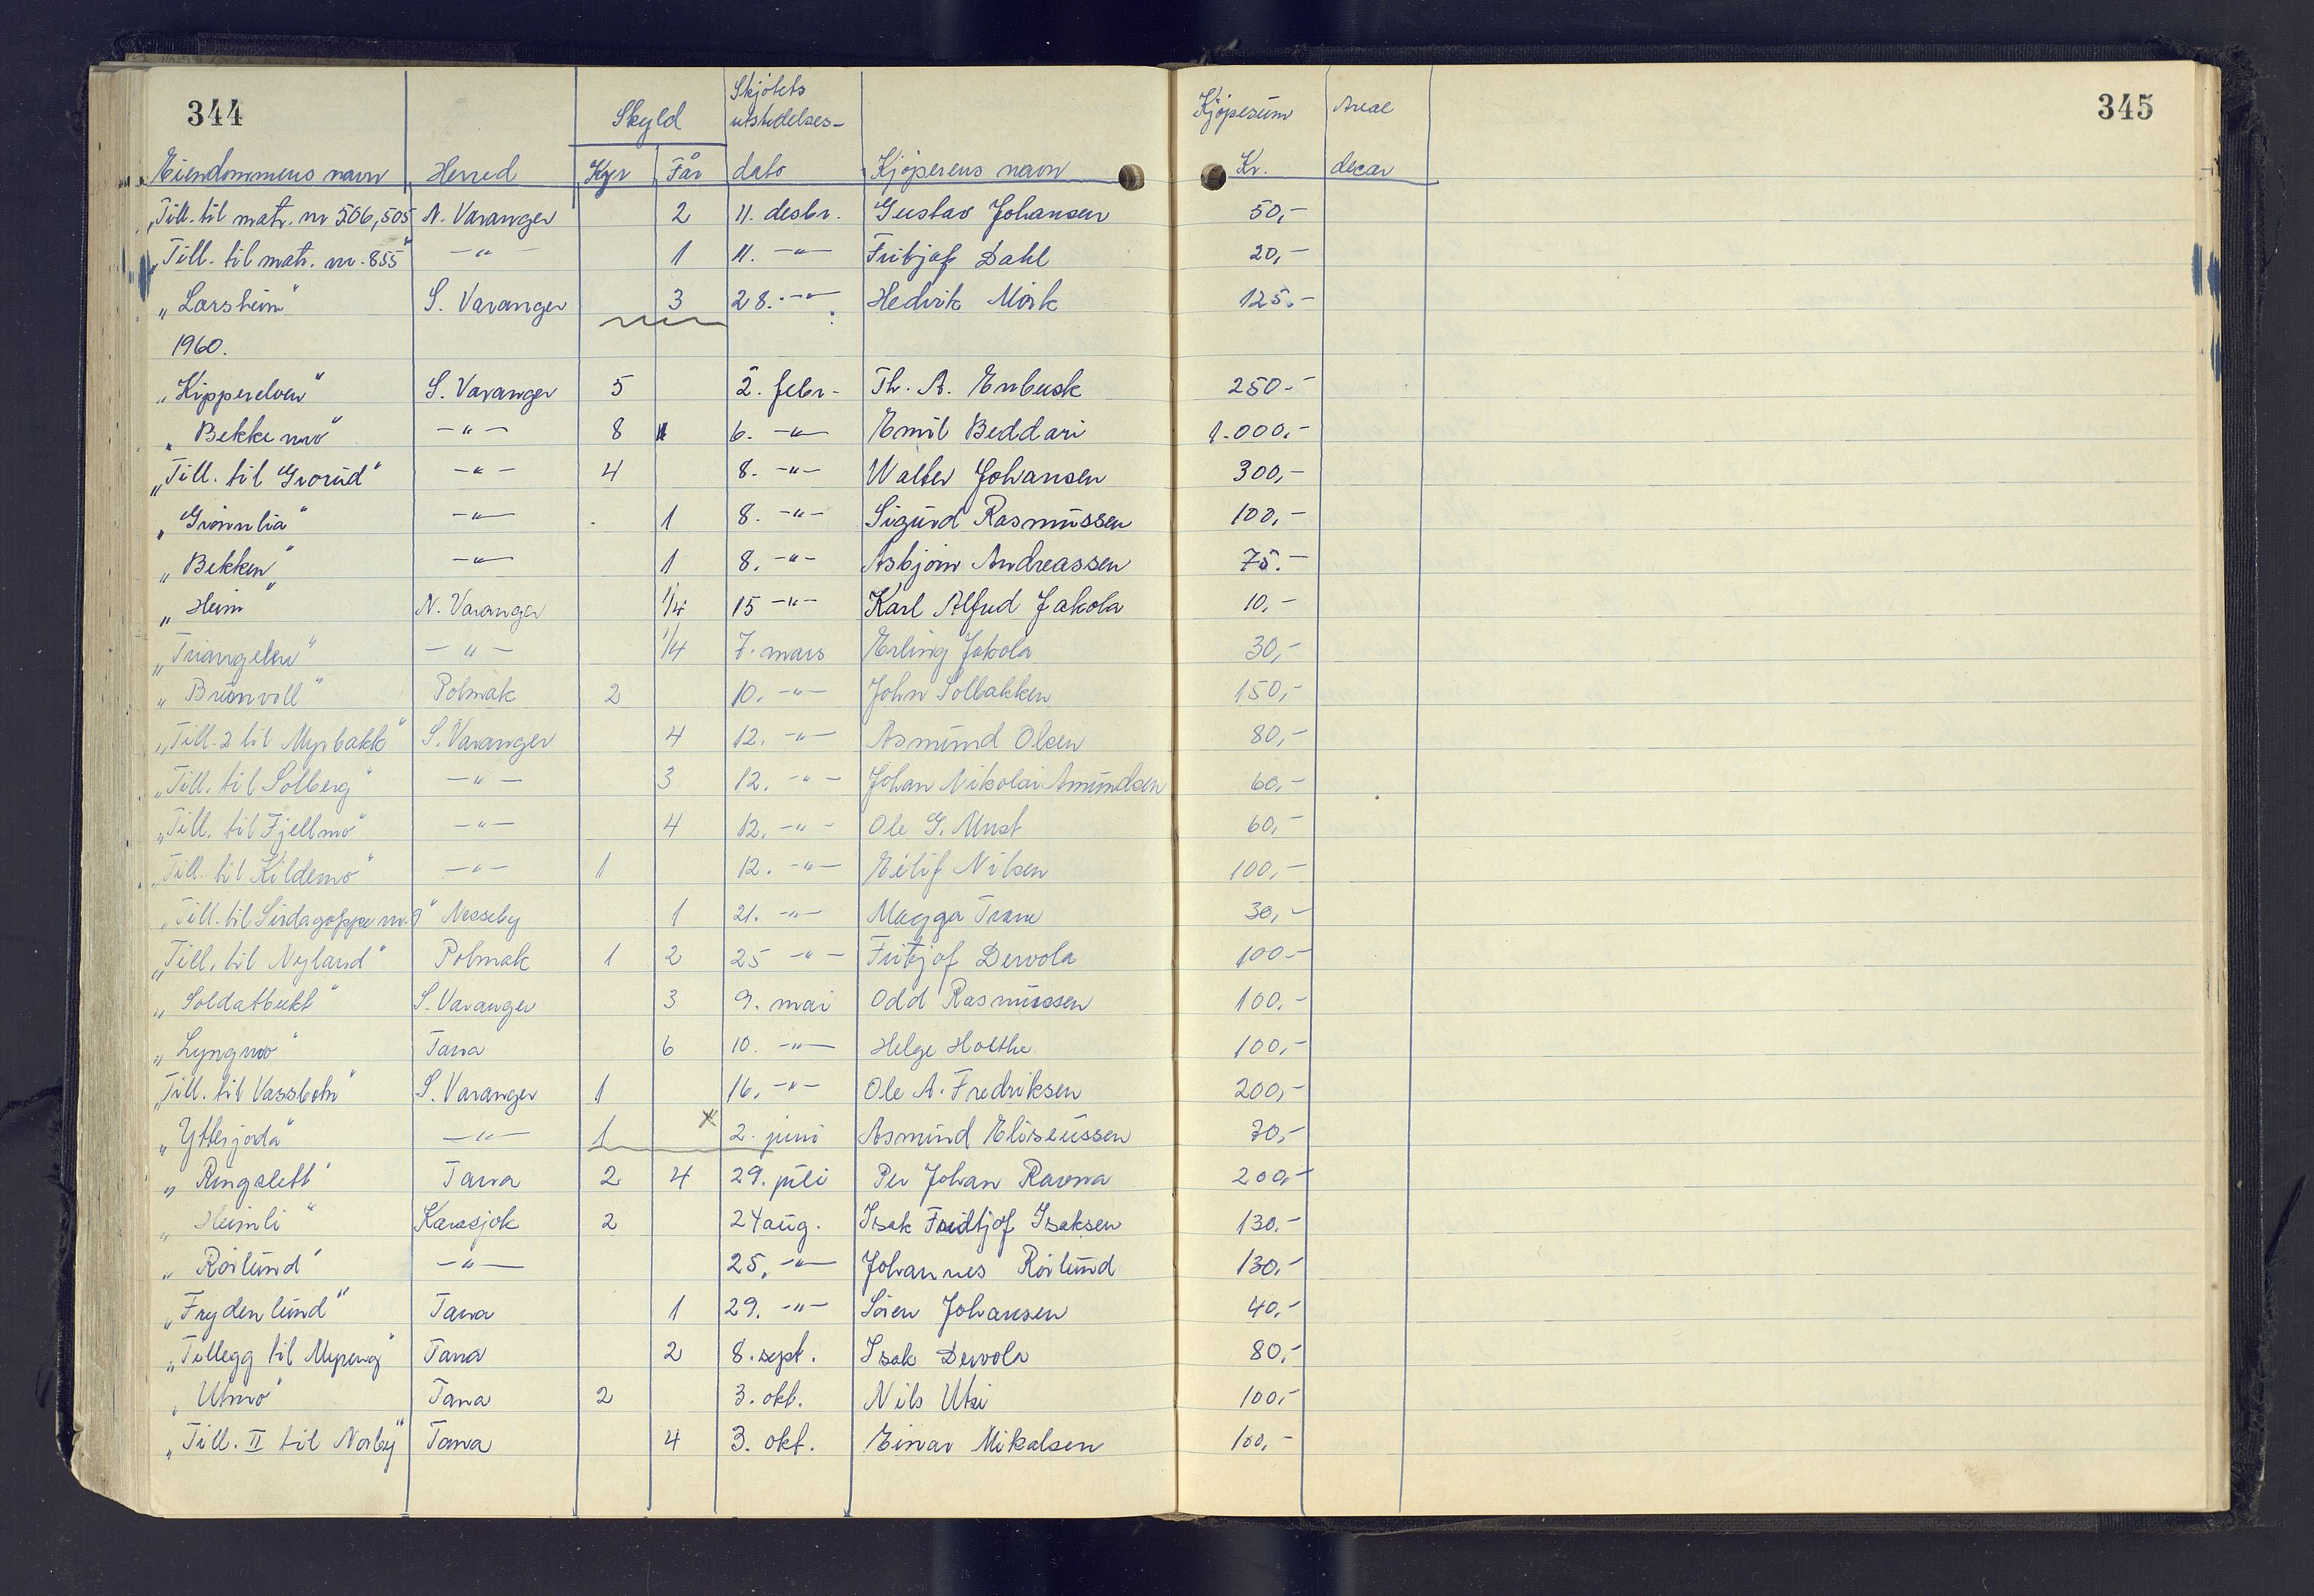 344
345
Skjøtets
Skyld utstedelses- Kjøpesum Areal
Eiendommens navn Herred Kyr Får dato Kjøperens navn Kr. decar
"Till. til matr. nr 506,505 N. Varanger 2 11. desbr. Gustav Johansen 50,-
"Till. til matr. nr. 855" -"- 1 11. -"- Fritjof Dahl 20,-
"Larsheim" S. Varanger 3 28. -"- Hedvik Mörk 125.-
1960.
"Kipperelven" S. Varanger 5 2. febr. Th. A. Enbusk 250.-
"Bekkemo" -"- 8 6. -"- Emil Beddari 1.000,-
"Till. til Grorud" -"- 4 8. -"- Walter Johansen 300,-
"Grönnlia" -"- 1 8. -"- Sigurd Rasmussen 100,-
"Bekken" -"- 1 8. -"- Asbjörn Andreassen 75.-
"Heim" N. Varanger 1/4 15 -"- Karl Alfred Jakola 10,-
"Triangelen" -"- 1/4 7. mars Erling Jakola 30,-
"Brunvoll" Polmak 2 10. -"- John Solbakken 150,-
"Till. 2 til Myrbakk" S. Varanger 4 12. -"- Asmund Olsen 80,-
"Till. til Solberg" -"- 3 12. -"- Johan Nikolai Amundsen 60,-
"Till. til Fjellmo" -"- 4 12. -"- Ole G. Must 60,-
"Till. til Kildemo" -"- 1 12. -"- Eilif Nilsen 100,-
"Till. til Sirdagoppe nr. 9" Nesseby 1 21. -"- Magga Trane 30,-
"Till. til Nyland" Polmak 1 2 25 -"- Fritjof Dervola 100-
"Soldatbukt" S. Varanger 3 9. mai Odd Rasmussen 100,-
"Lyngmo" Tana 6 10. -"- Helge Holthe 100,-
"Till. til Vassbotn" S. Varanger 1 16. -"- Ole A. Fredriksen 200,-
"Ytterjorda" -"- 1 x 2. juni Asmund Eliseussen 30,-
"Ringslett" Tana 2 4 29. juli Per Johan Ravna 200,-
"Heimli" Karasjok 2 24 aug. Isak Fridtjof Isaksen 130.-
"Rörlund" -"- 25. -"- Johannes Rörlund 130,-
"Frydenlund" Tana 1 29. -"- Sören Johansen 40,-
"Tillegg til Myreng" Tana 2 8. sept. Isak Dervola 80,-
"Utmo" Tana 2 3. okt. Nils Utsi 100,-
"Till. II til Norby" Tana 4 3. okt. Einar Mikalsen 100,-